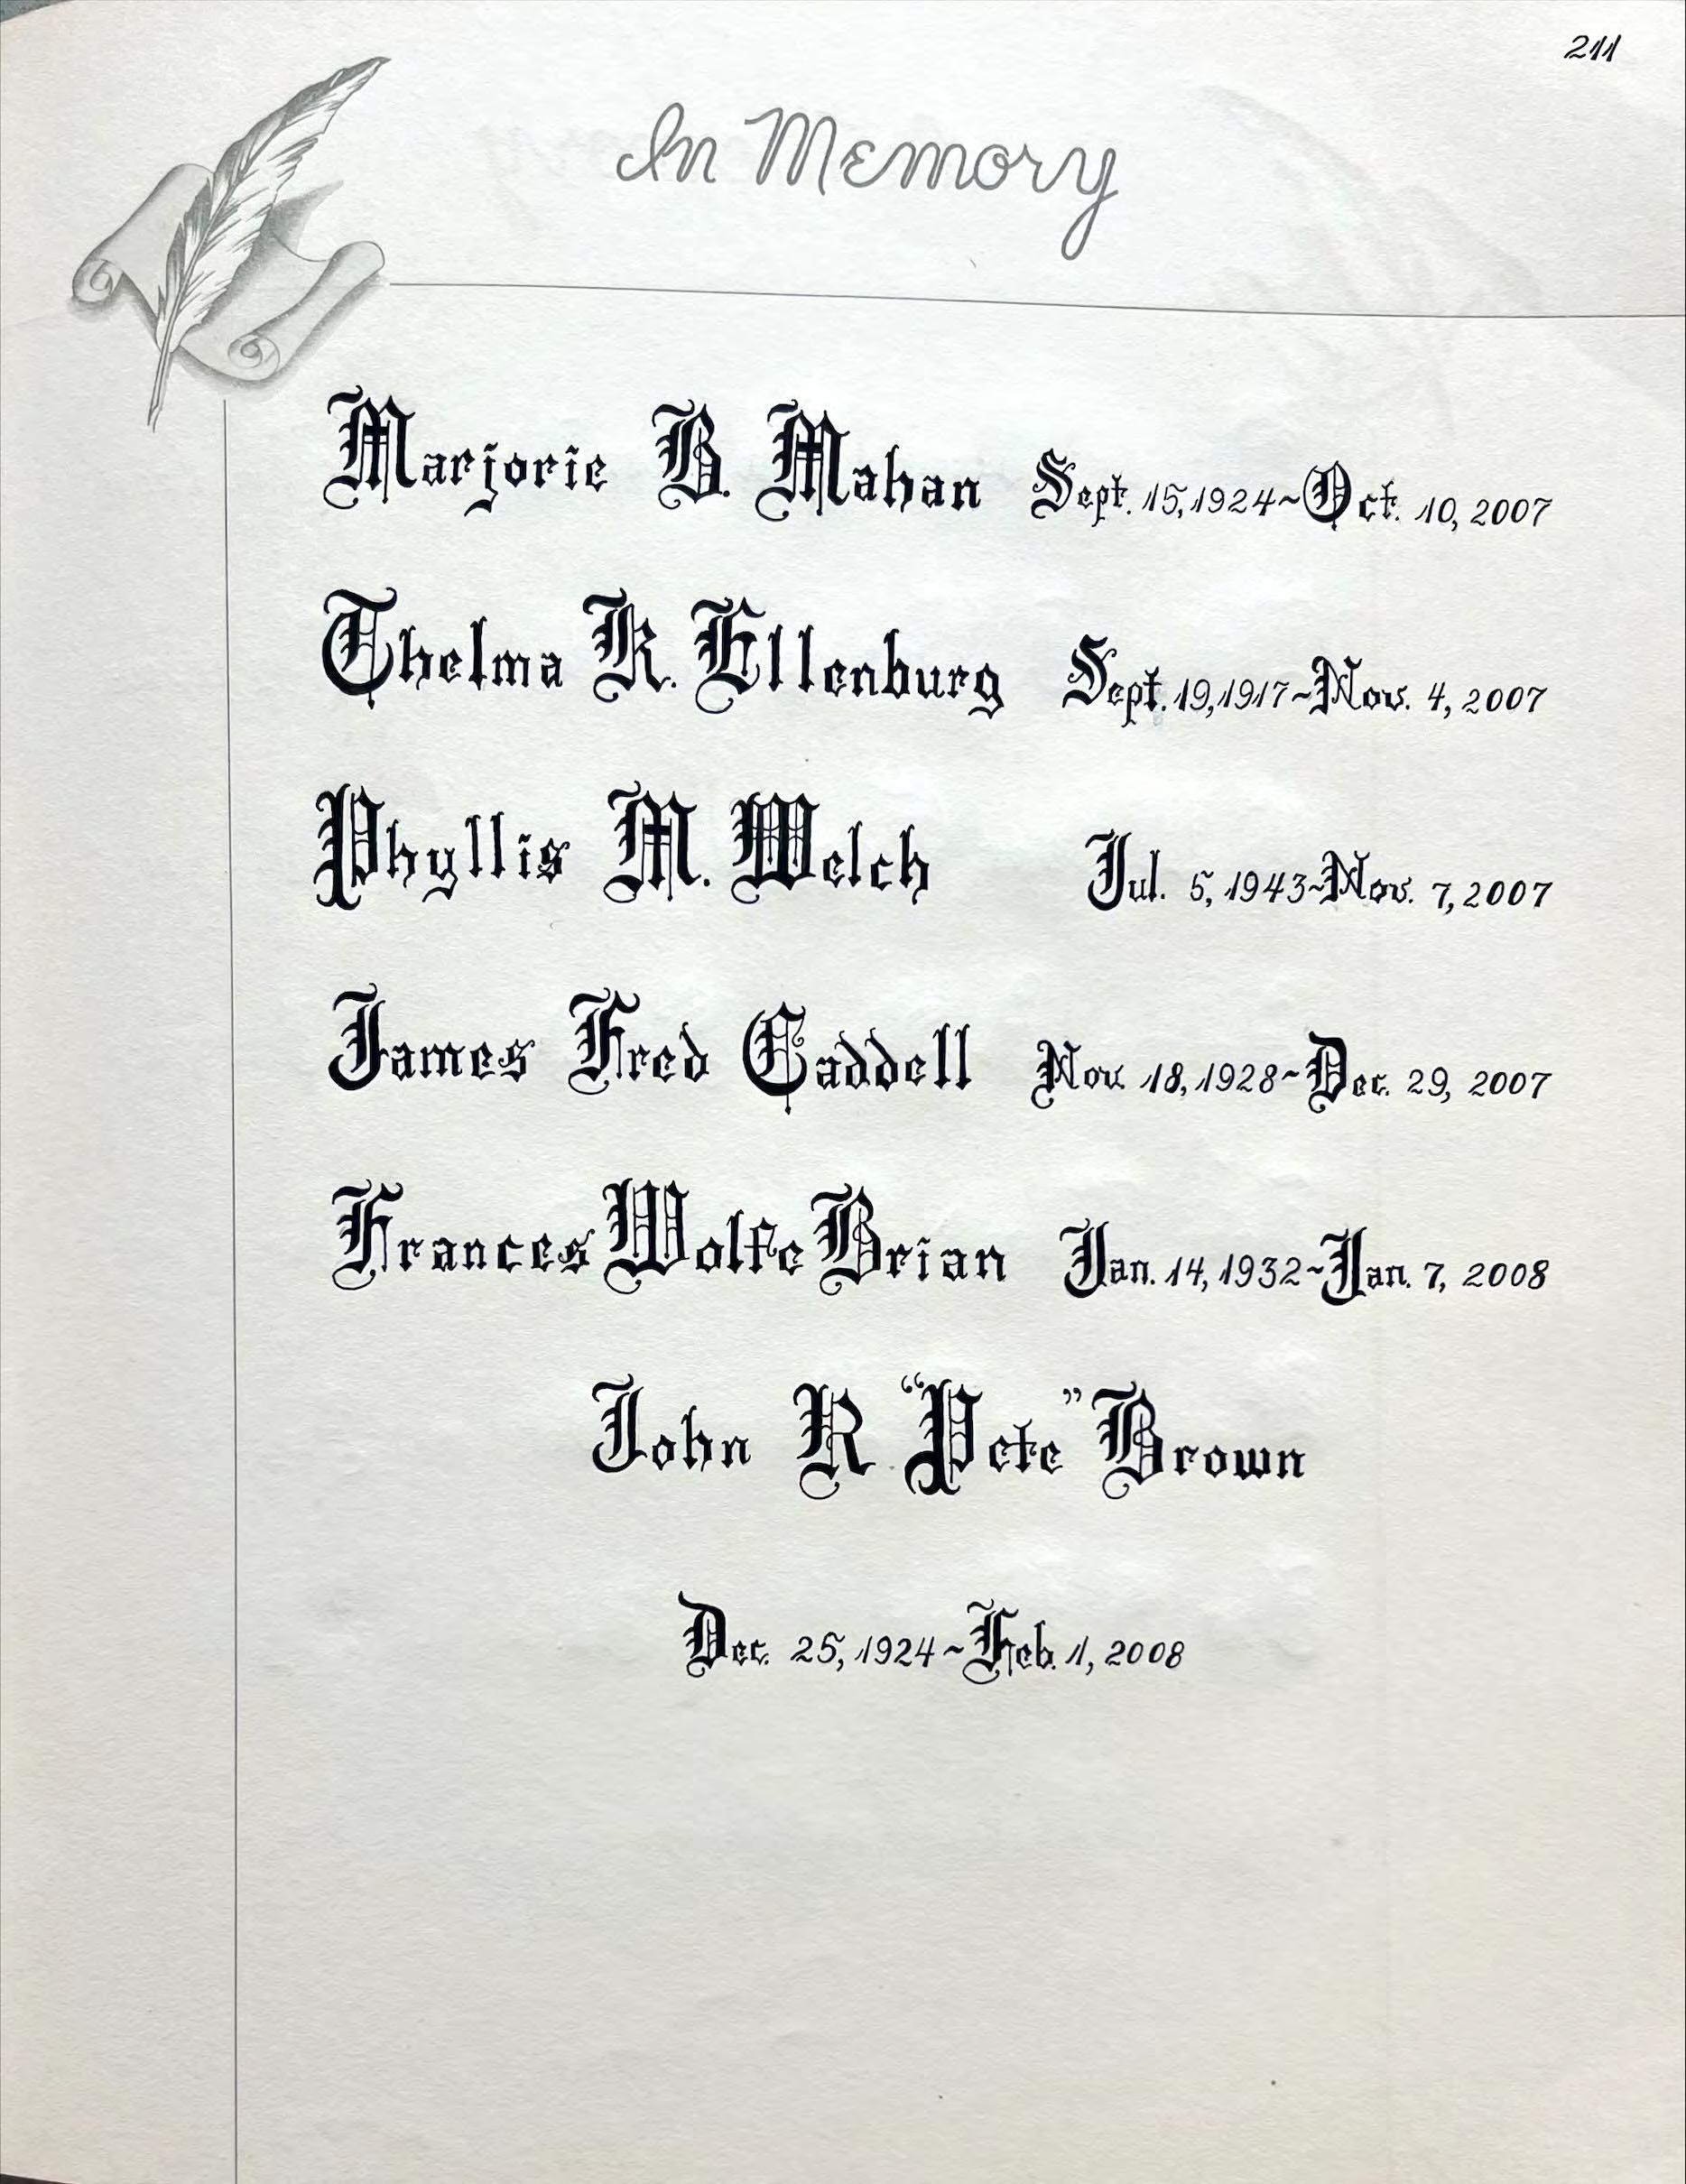 211
In Memory
Marjorie B. Mahan Sept. 15, 1924~Oct. 10, 2007
Thelma K. Ellenburg Sept. 19, 1917~Nov. 4, 2007
Phyllis M. Welch Jul. 5, 1943~Nov. 7, 2007
James Fred Caddell Nov. 18, 1928~Dec. 29, 2007
Frances Wolfe Brian Jan. 14, 1932~Jan. 7, 2008
John R. “Pete” Brown
Dec. 25, 1924~Feb. 1, 2008